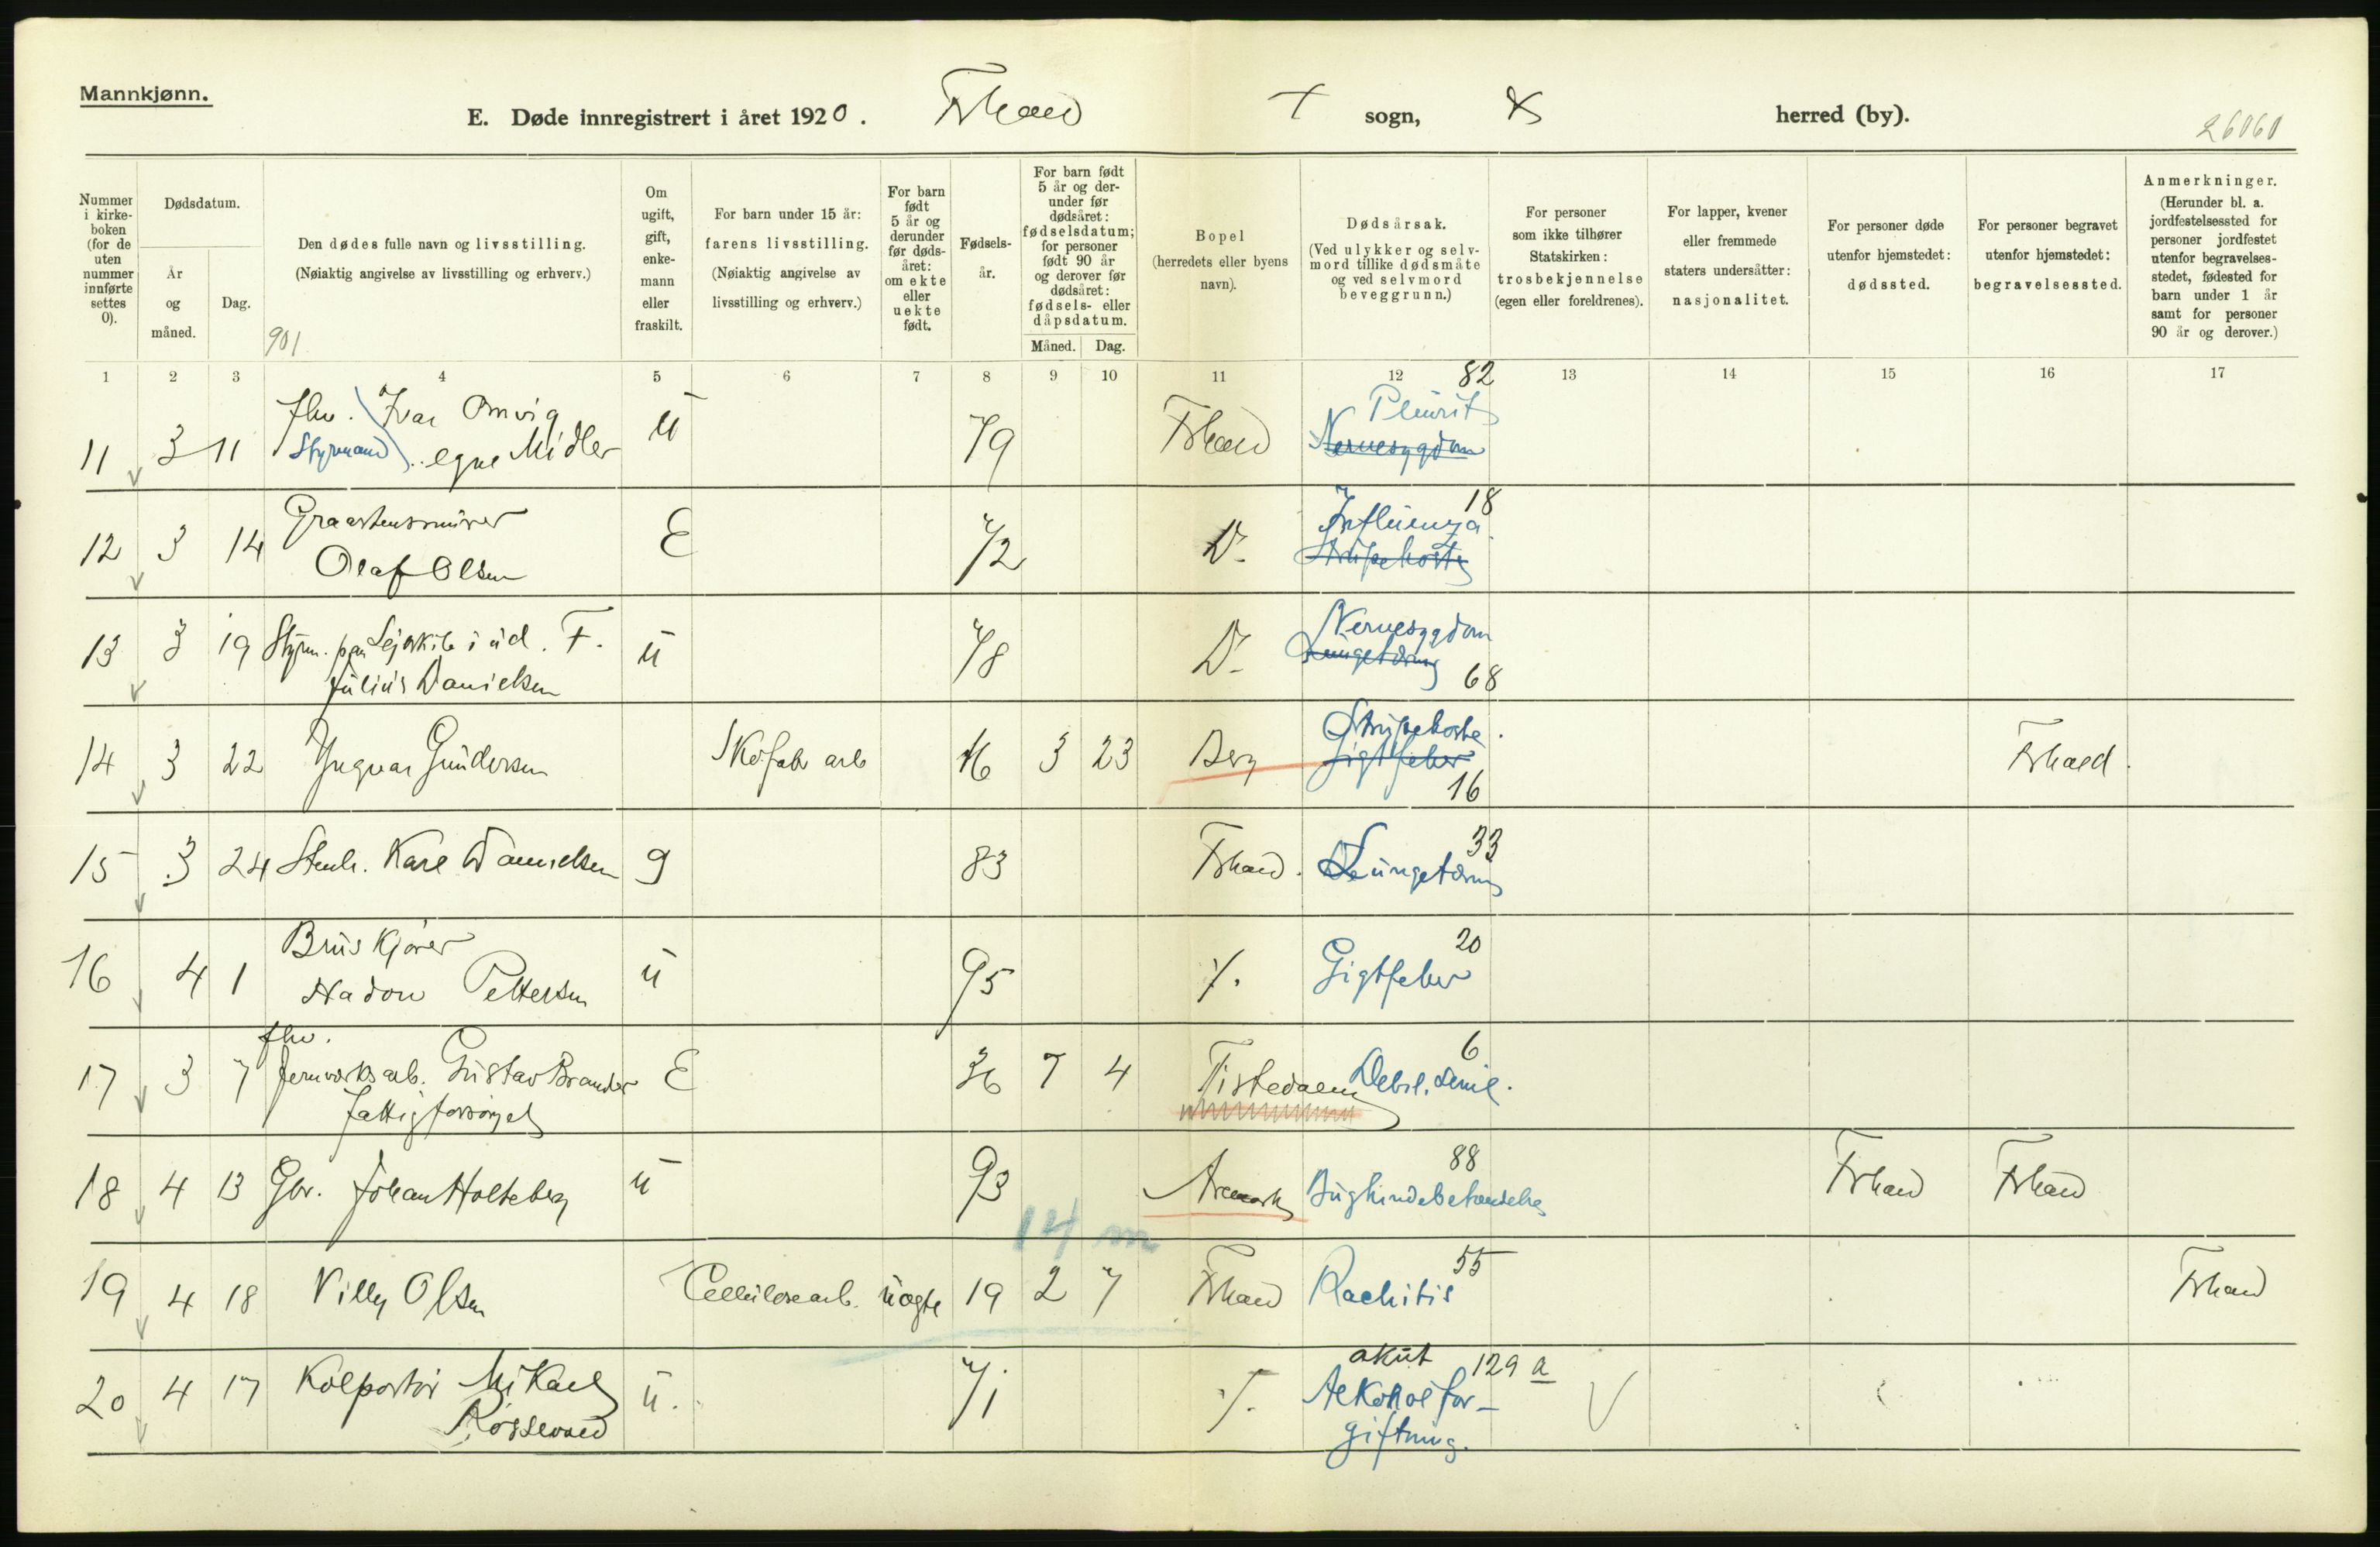 Mannkjønn.
E. Døde innregistrert i året 1920. Fr.hald + sogn, herred (by).
26060
Nummer i kirkeboken (for de uten nummer innførte settes 0).
Dødsdatum.
År og måned.
Dag.
Den dødes fulle navn og livsstilling.
(Nøiaktig angivelse av livsstilling og erhverv.)
901
Om ugift, gift, enkemann eller fraskilt.
For barn under 15 år: farens livsstilling.
(Nøiaktig angivelse av livsstilling og erhverv.)
For barn født 5 år og derunder før dødsåret: om ekte eller uekte født.
Fødselsår.
For barn født 5 år og derunder før dødsåret: fødselsdatum; for personer født 90 år og derover før dødsåret: fødsels- eller dåpsdatum.
Måned. Dag.
Bopel
(herredets eller byens navn).
Dødsårsak.
(Ved ulykker og selvmord tillike dødsmåte og ved selvmord beveggrunn.)
For personer som ikke tilhører Statskirken: trosbekjennelse (egen eller foreldrenes).
For lapper, kvener eller fremmede staters undersåtter: nasjonalitet.
For personer døde utenfor hjemstedet: dødssted.
For personer begravet utenfor hjemstedet: begravelsessted.
Anmerkninger.
(Herunder bl. a. jordfestelsessted for personer jordfestet utenfor begravelsesstedet, fødested for barn under 1 år samt for personer 90 år og derover.)
1 2 3 4 5 6 7 8 9 10 11 12 13 14 15 16 17
82
fhv. Ivar Omvig Pleurit
11 3 11 Styrmand egne Midler u 79 Fr.hald Nervesygdom
18
Graastensmurer Influenza
12 3 14 Olaf Olsen E 72 D- Strupehoste
Nervesygdom
13 3 19 Styrm. paa Sejlskib i ud. F. u 78 D- Lungetæring
Julius Danielsen 68
Strupehoste
14 3 22 Yngvar Gundersen Skofabr arb 16 3 23 Berg Gigtfeber Fr.hald
16
33
15 3 24 Stenh. Karl Danielsen g 83 Fr.hald Lungetæring
Bruskjører 20
16 4 1 Pettersen u 95 Gigtfeber
fhv. 6
17 3 7 Jernverksarb. Gustav Brander E 36 7 4 Tistedalen Debil. senil.
fattigforsørget
88
18 4 13 Gbr. Johan Holteberg u 93 Aremark Bughindebetændelse Fr.hald Fr.hald
14 m
55
19 4 18 Villy Olsen Cellulosearb. uægte 19 2 7 Fr.hald Rachitis Fr.hald
akut 129 a
20 4 17 Kolportør Mikael u. 71 Alkoholfor-
Røssevold giftning.